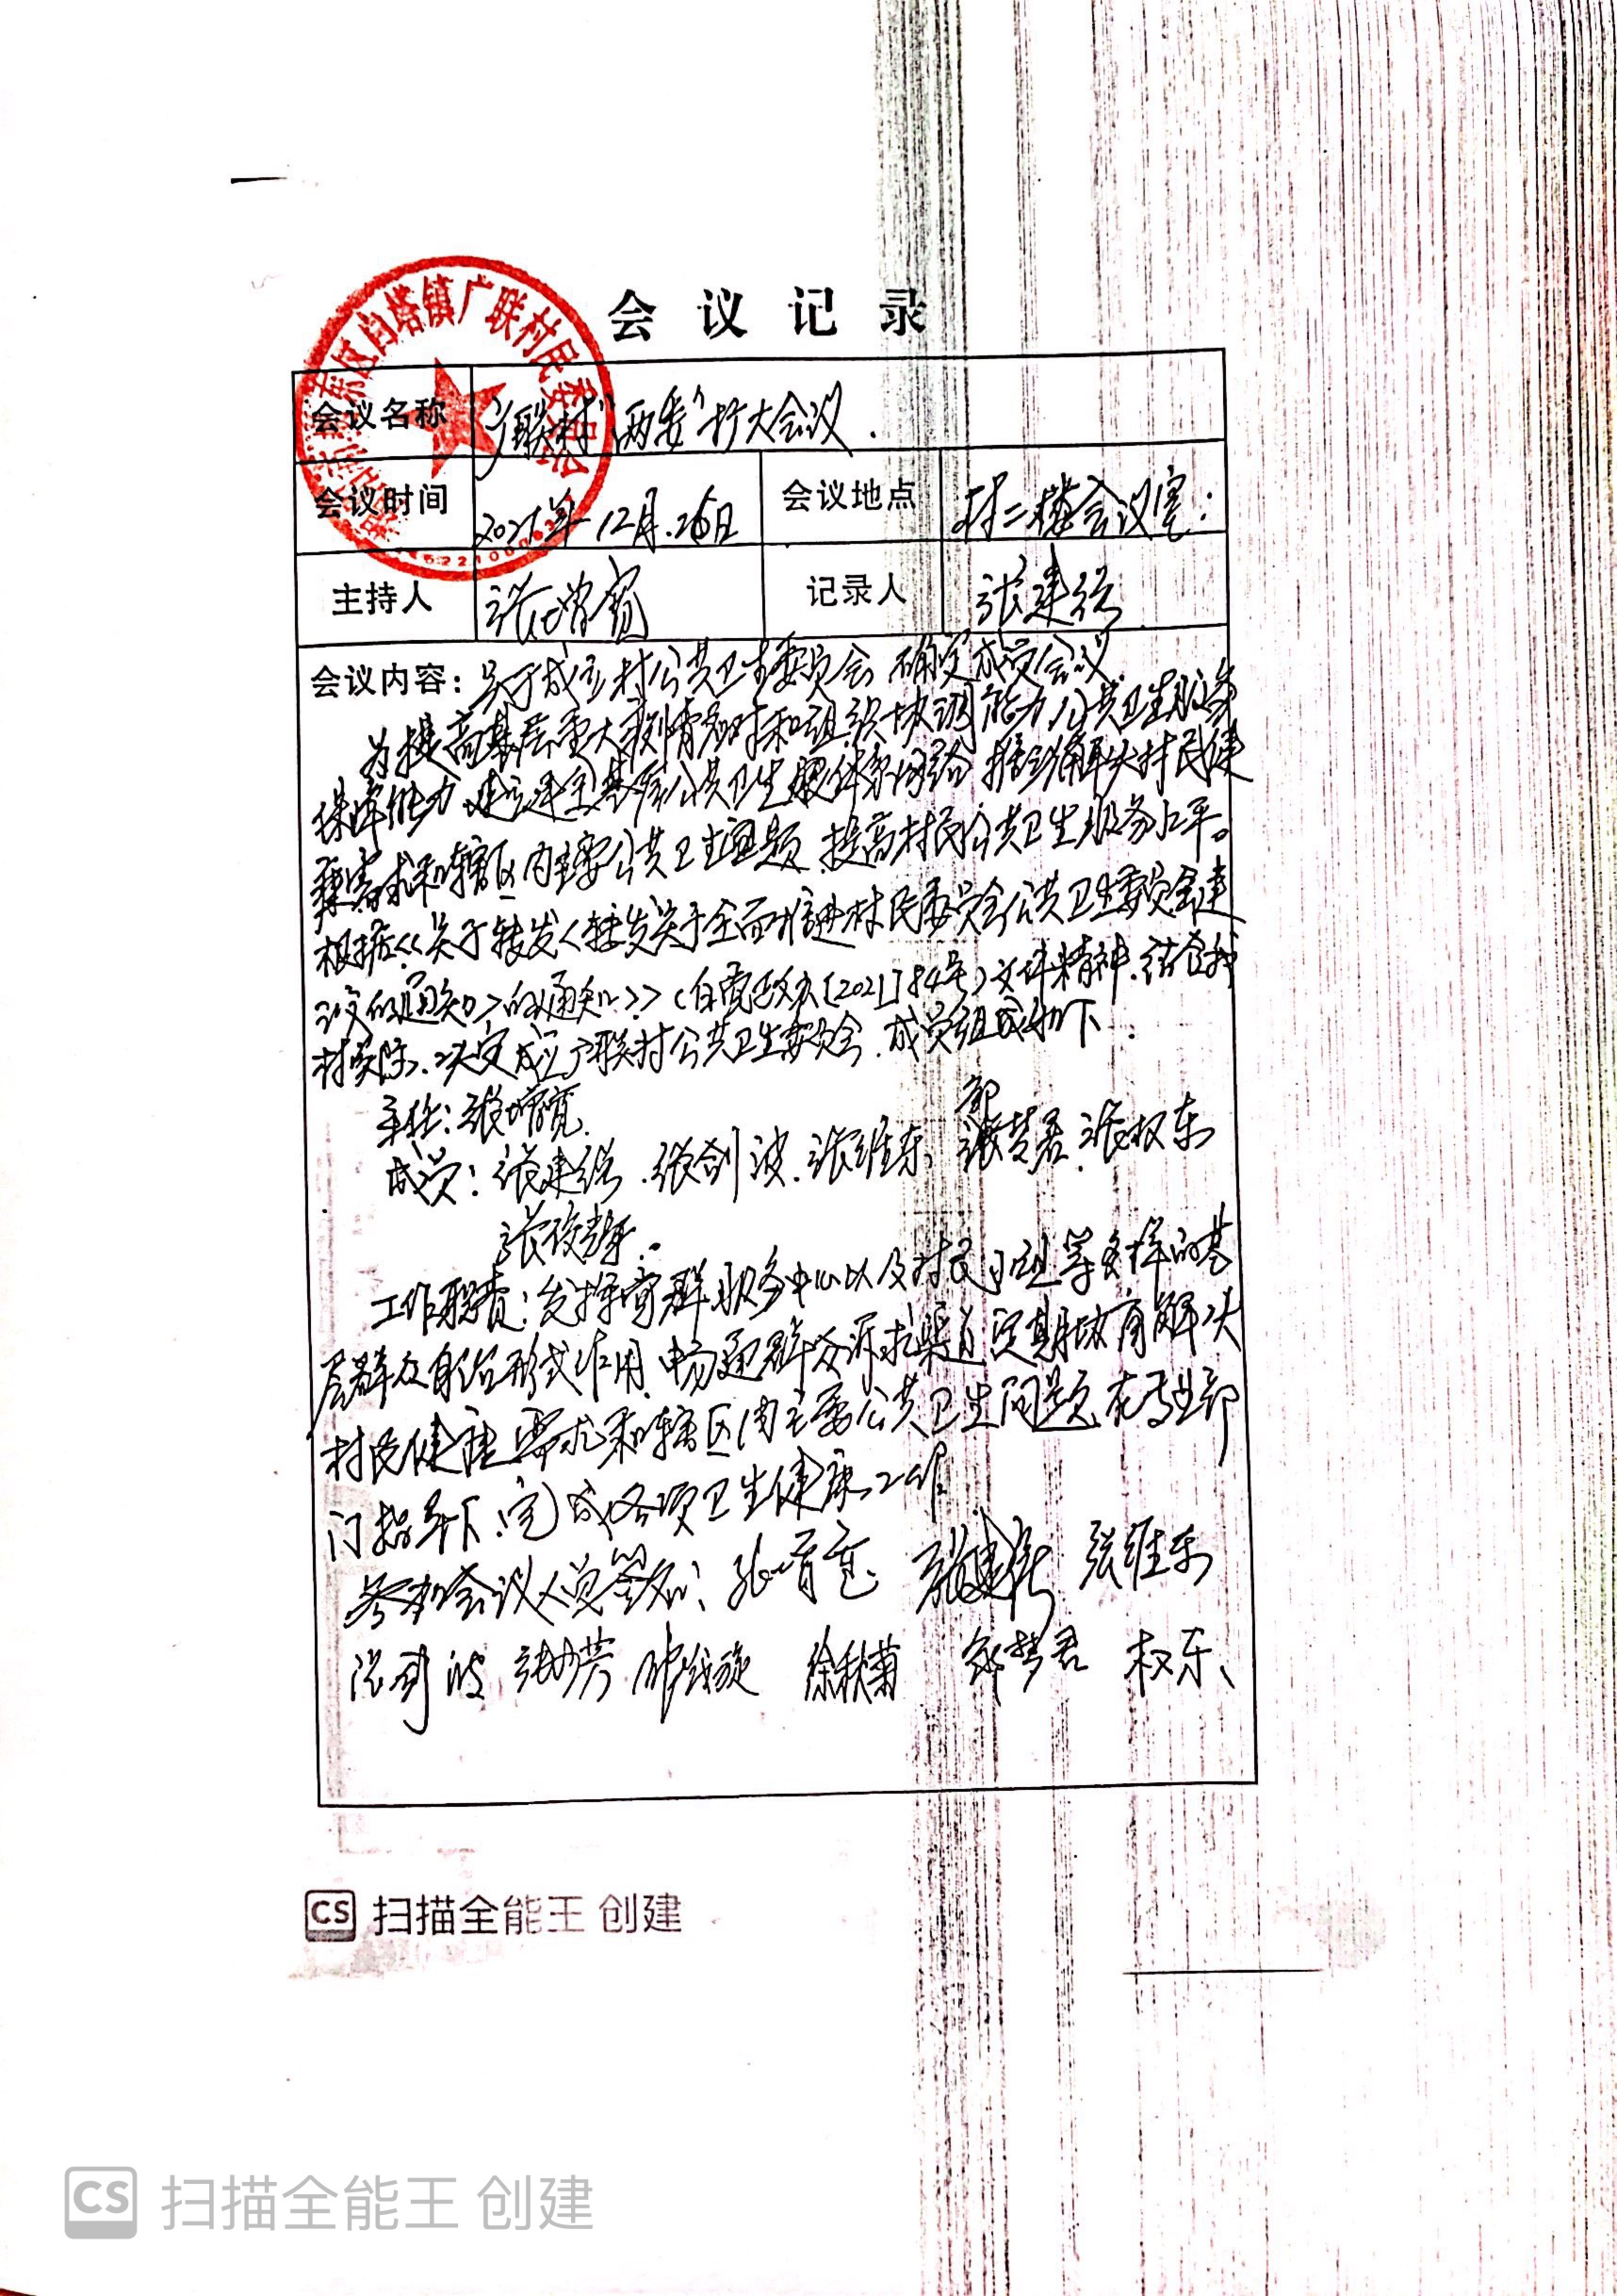 会议记录
会议名称 广联村"两委"扩大会议.
会议时间 2021年12月.26日 会议地点 村二楼会议室:
主持人 张增宽 记录人 张建
会议内容: 关于成立村公共卫生委员会、确定成员会议
为提高基层重大疫情应对和组织协调能力,公共卫生服务
保障能力,建立健全基层公共卫生体系网络,推动解决村民健
康需求和辖区内主要公共卫生问题,提高村民公共卫生服务水平。
根据《关于转发<转发关于全面推进村民委员会公共卫生委员会建
设的通知>的通知》(白政办[2021]84号)文件精神.结合我
村实际.决定成立广联村公共卫生委员会.成员组成如下:
主任:张增宽.
郭
成员:张建 .张剑波.张维东、 梦君、张权东
张
工作职责:发挥党群服务中心以及村民小组等多样的基
层群众自治形式作用,畅通群众诉求渠道,定期协商解决
村民健康需求和辖区内主要公共卫生问题,在专业部
门指导下,完成各项卫生健康工作
参加会议人员签名: 张增宽 张建 张维东
张剑波 徐秋菊 郭梦君 权东、
CS 扫描全能王 创建
CS 扫描全能王 创建
白塔镇广联村民委员会